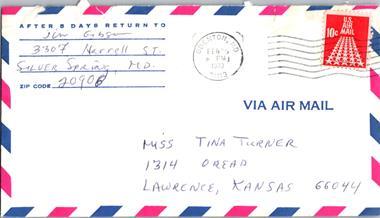 AFTER 5 DAYS RETURN TO
Jim Gibson
3307 Harrell ST.
SILVER Spring, MD.
ZIP CODE 20906
U.S.
AIR MAIL
10c
PM
VIA AIR MAIL
MISS TINA TURNER
1314 OREAD
LAWRENCE, KANSAS 66044